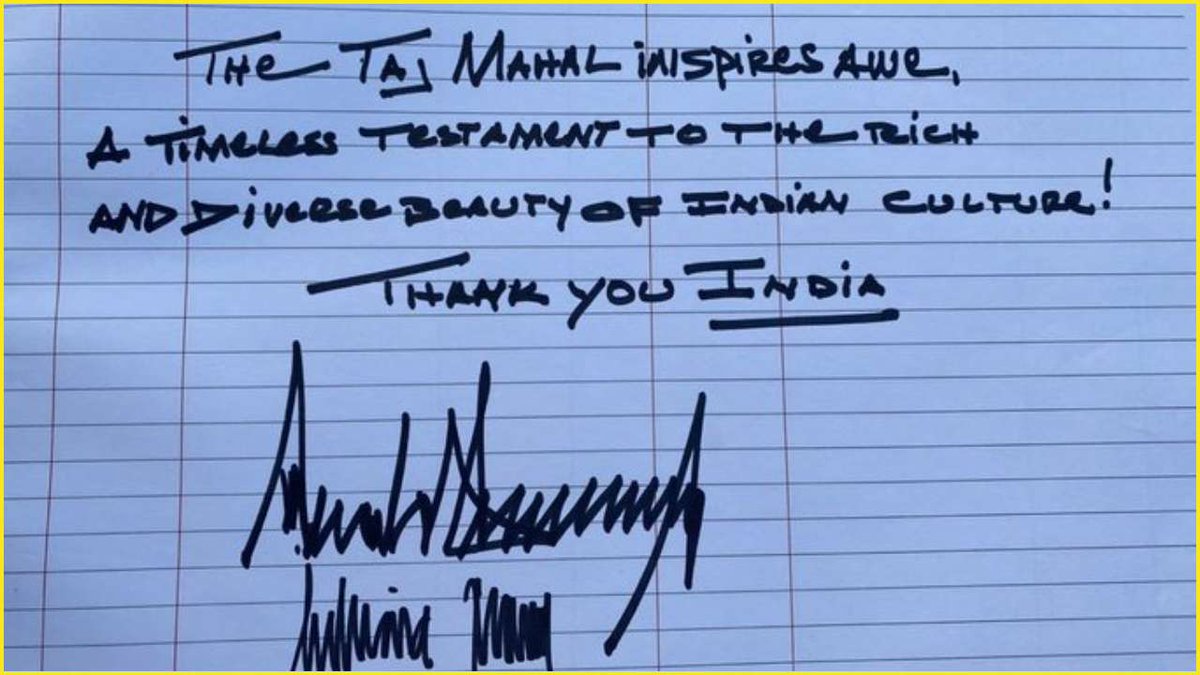 The Taj Mahal inispires awe,
A timeless testament to the rich
and diverse beauty of Indian culture!
Thank you India